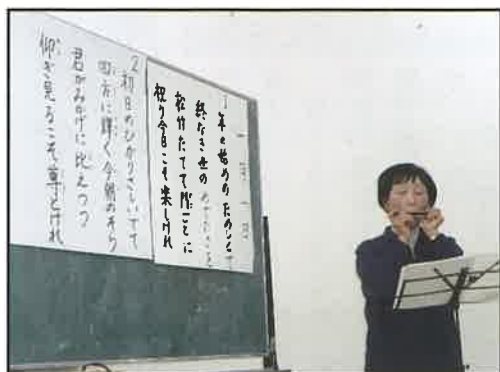 一月一日
1 年の始めのためしとて
終なき世のめでたさを
松竹たてて門ごとに
祝う今日こそ楽しけれ
2 初日のひかりさしいでて
四方に輝く今朝のそら
君がみかげに比えつつ
仰ぎ見るこそ尊とけれ